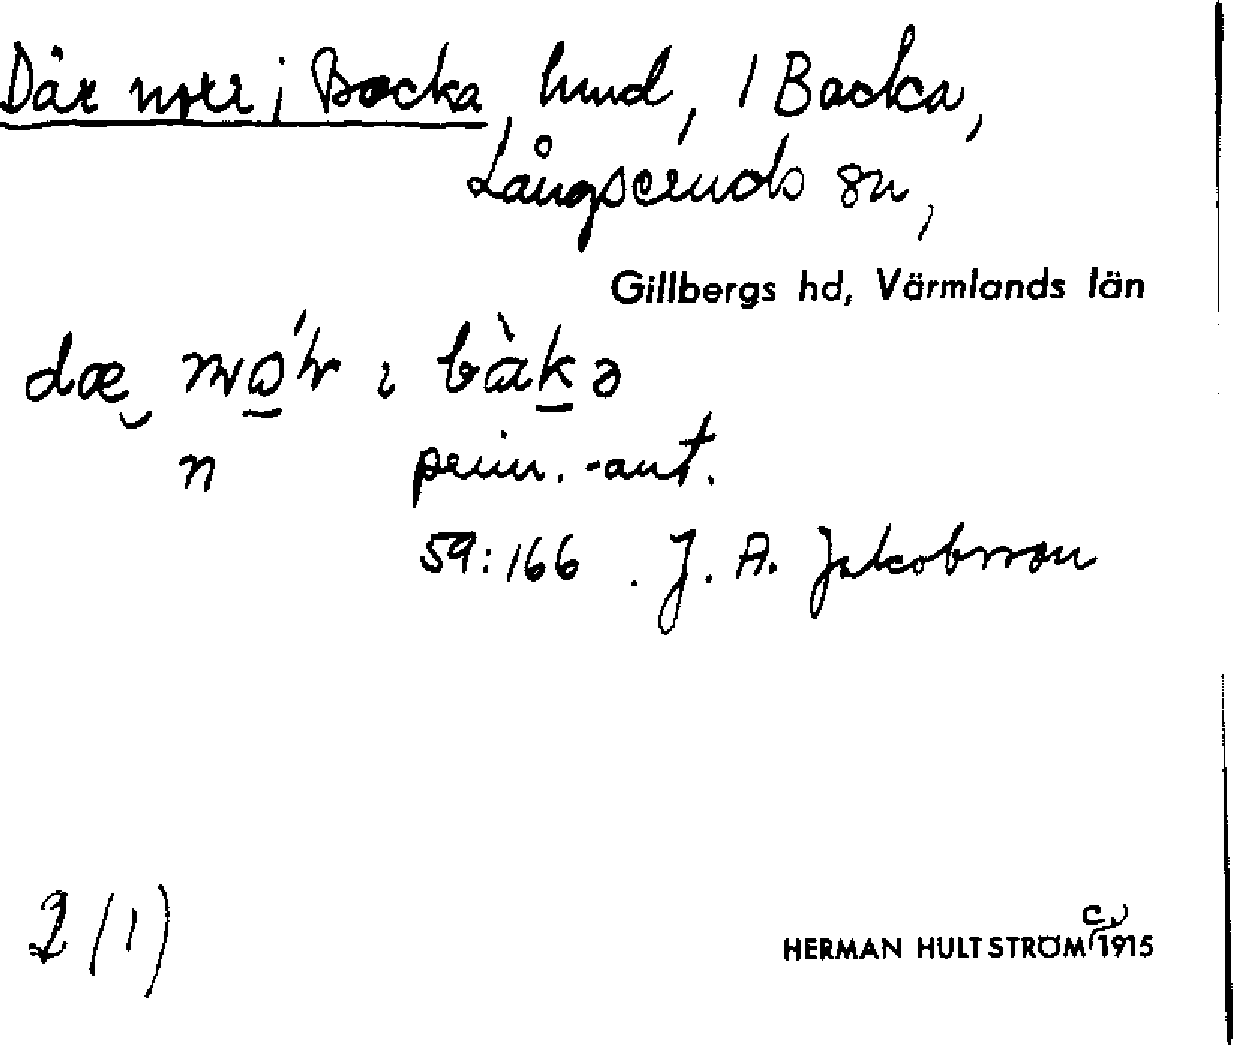 Där norr i Backa, hmd, 1 Backa,
Långseruds sn,
Gillbergs hd, Värmlands län
dæ nǫ́r ı bàk̲ə
n prim.-ant.
59:166. J. A. Jakobsson
2 (1)
HERMAN HULTSTRÖM c. 1915